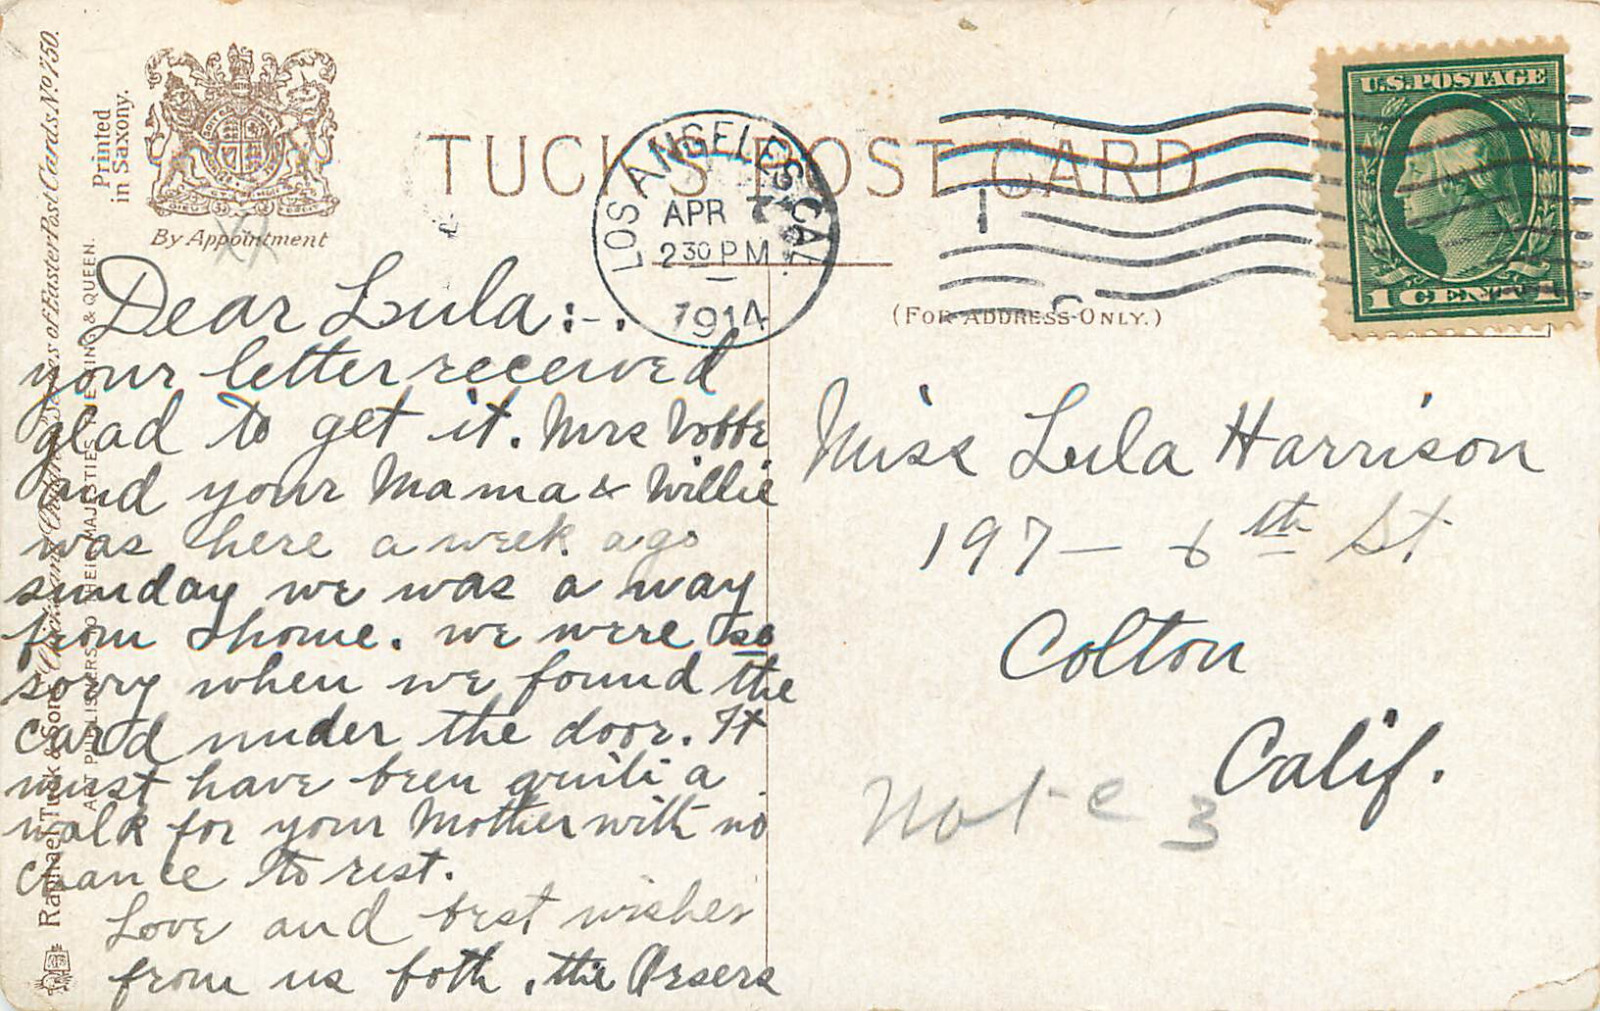 Raphael Tuck & Sons' Series of Easter Post Cards. No. 750.
ART PUBLISHERS TO THEIR MAJESTIES THE KING & QUEEN.
Printed
in Saxony.
By Appointment
TUCK'S POST CARD
LOS ANGELES, CAL.
APR 7
2 30 PM
1914
1
U.S. POSTAGE
1 CENT 1
(FOR ADDRESS ONLY.)
Dear Lula:-.
your letter received
glad to get it. Mrs
and your Mama & Willie
was here a week ago
sunday we was a way
from home. we were so
sorry when we found the
card under the door. It
must have been quite a
walk for your Mother with no
chance to rest.
Love and best wishes
from us both, the
Miss Lula Harrison
197 - 6th St
Colton
Calif.
3